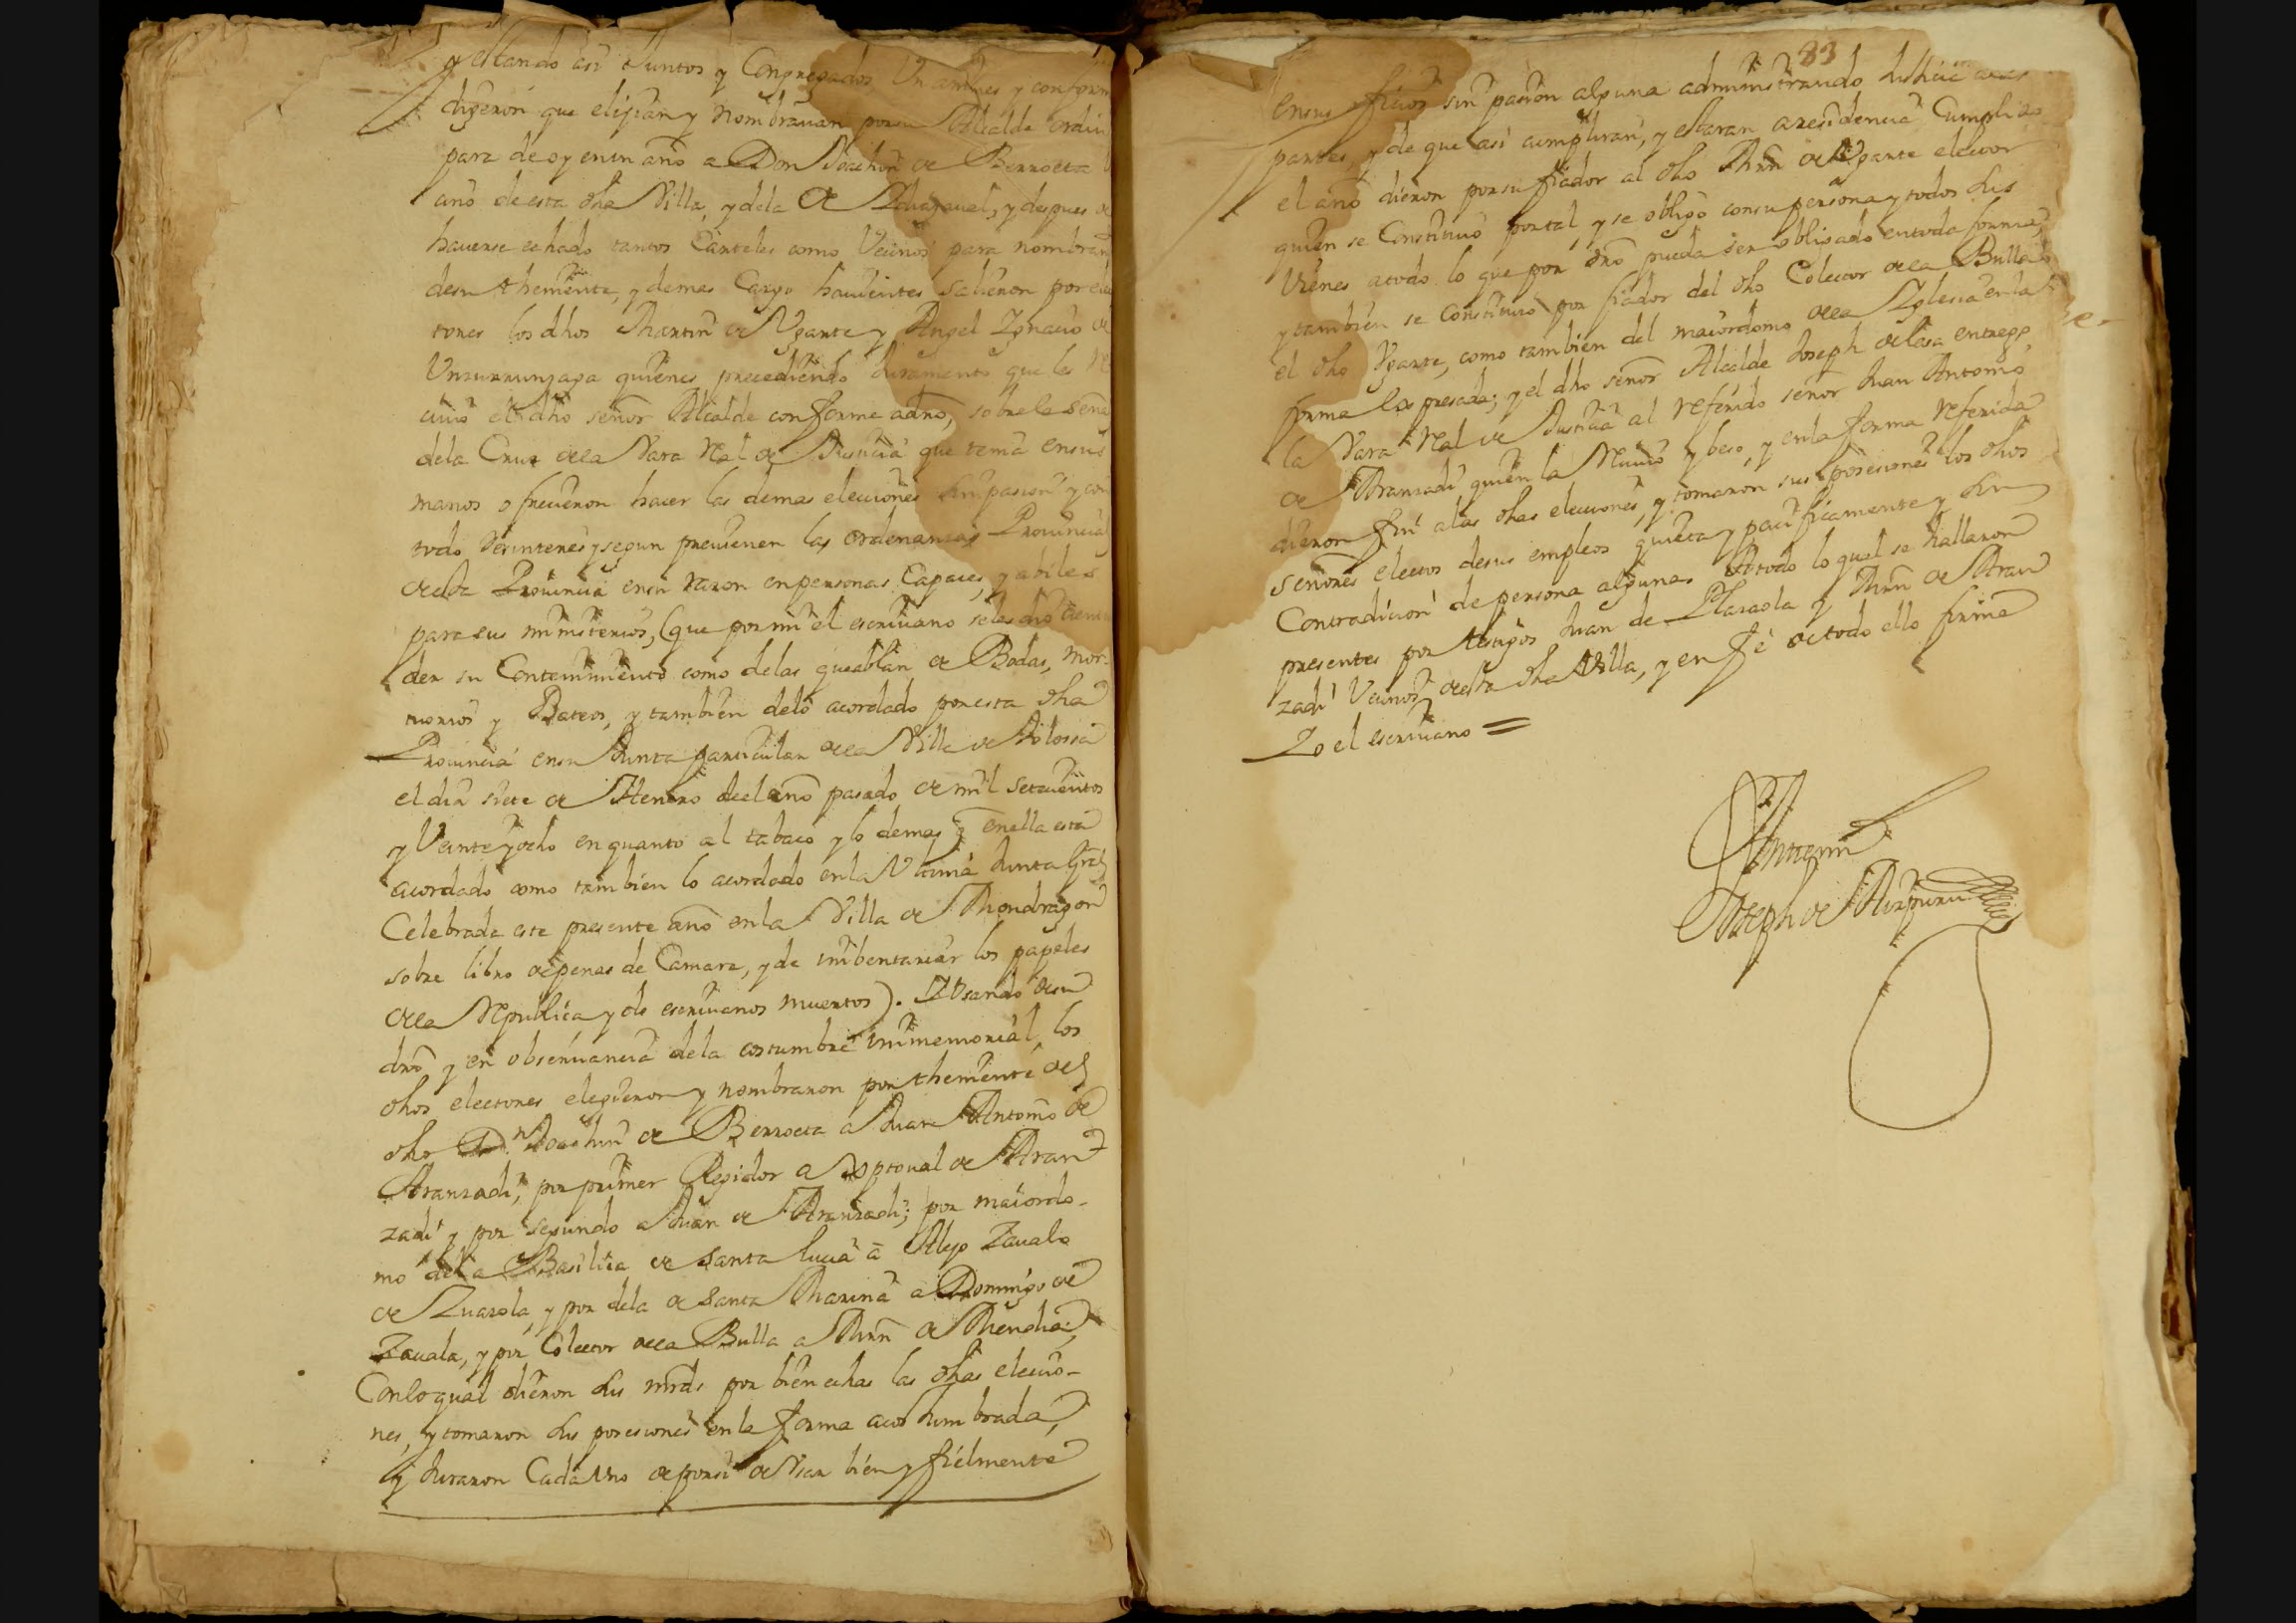 y estando asi Juntos y Congregados, Unanimes y conform
dijeron que elijian y nombrauan por su Alcalde ordin
para de oy en un año a Don Joachin de Berroeta
uno de esta dha Villa, y dela de y despues de
hauerse echado tantos Carteles como Vecinos para nombram
de su theniente, y demas Cargo hauientes salieron por elec
tores los dhos Martin de Ugarte y Angel Ygnacio de
Unzurrunzaga quienes precediendo Juramento que les re
ciuio el dho señor Alcalde conforme a dro, sobre la señal
dela Cruz dela Vara Real de Justicia que tenia en sus
manos ofrecieron hacer las demas elecciones sin pasion y con
todo desinteres y segun preuienen las ordenanzas Prouincia
desta Prouincia en su razon en personas Capaces, y abiles
para sus ministerios, (que por mi el escriuano se les dio a enten
der su Contenimiento como delas que ablan de Bodas, mor-
tuorios y Bateos, y tambien delo acordado por esta dha
Prouincia en su Junta particular dela Villa de Tolossa
el dia siete de Henero del año pasado de mil setecientos
y Veinte y ocho en quanto al tabaco y lo demas q̃ en ella esta
acordado como tambien lo acordado en la Ultima Junta Gral
Celebrada este presente año en la Villa de Mondragon
sobre libro de penas de Camara, y de imbentariar los papeles
dela Republica y de escriuanos muertos). Y Usando de su
dro y en obseruancia dela costumbre immemorial, los
dhos electores eligieron y nombraron por theniente del
dho Dn Joachin de Berroeta a Juan Antonio de
Aranzadi, por primer Regidor a de Aran
zadi y por segundo a Juan de Aranzadi; por maiordo-
mo dela Basilica de santa lucia a Alejo Zauala
de Zuazola, y por dela de santa Marina a Domingo de
Zauala, y por Colector dela Bulla a Mrn de Mendia;
Con lo qual dieron sus mrds por bien echas las dhas eleccio-
nes, y tomaron sus posesiones en la forma acostumbrada,
y Juraron Cada Uno de por si de Usar bien y fielmente
83
en sus oficios sin pasion alguna administrando Justicia alas
partes, y de que asi cumpliran, y estaran a residencia Cumplido
el año dieron por su fiador al dho Mrn de Ugarte elector
quien se Constituio por tal, y se obligo con su persona y todos sus
Vienes a todo lo que por dro pueda ser obligado en toda forma,
y tambien se Constituio por fiador del dho Colector dela Bulla
el dho Ugarte, como tambien del maiordomo dela Yglesia en la
forma espresada; y el dho señor Alcalde Joseph de entrego
la Vara Real de Justicia al referido señor Juan Antonio
de Aranzadi quien la reciuio y beso, y en la forma referida
dieron fin alas dhas elecciones, y tomaron sus posesiones los dhos
señores electos de sus empleos quieta y pacificamente y sin
Contradicion de persona alguna. A todo lo qual se hallaron
presentes por testigos Juan de Plazaola y Mrn de Aran
zadi Vecinos desta dha Villa, y en fe de todo ello firme
Yo el escriuano =
Ante mi
Joseph de Aizpuru